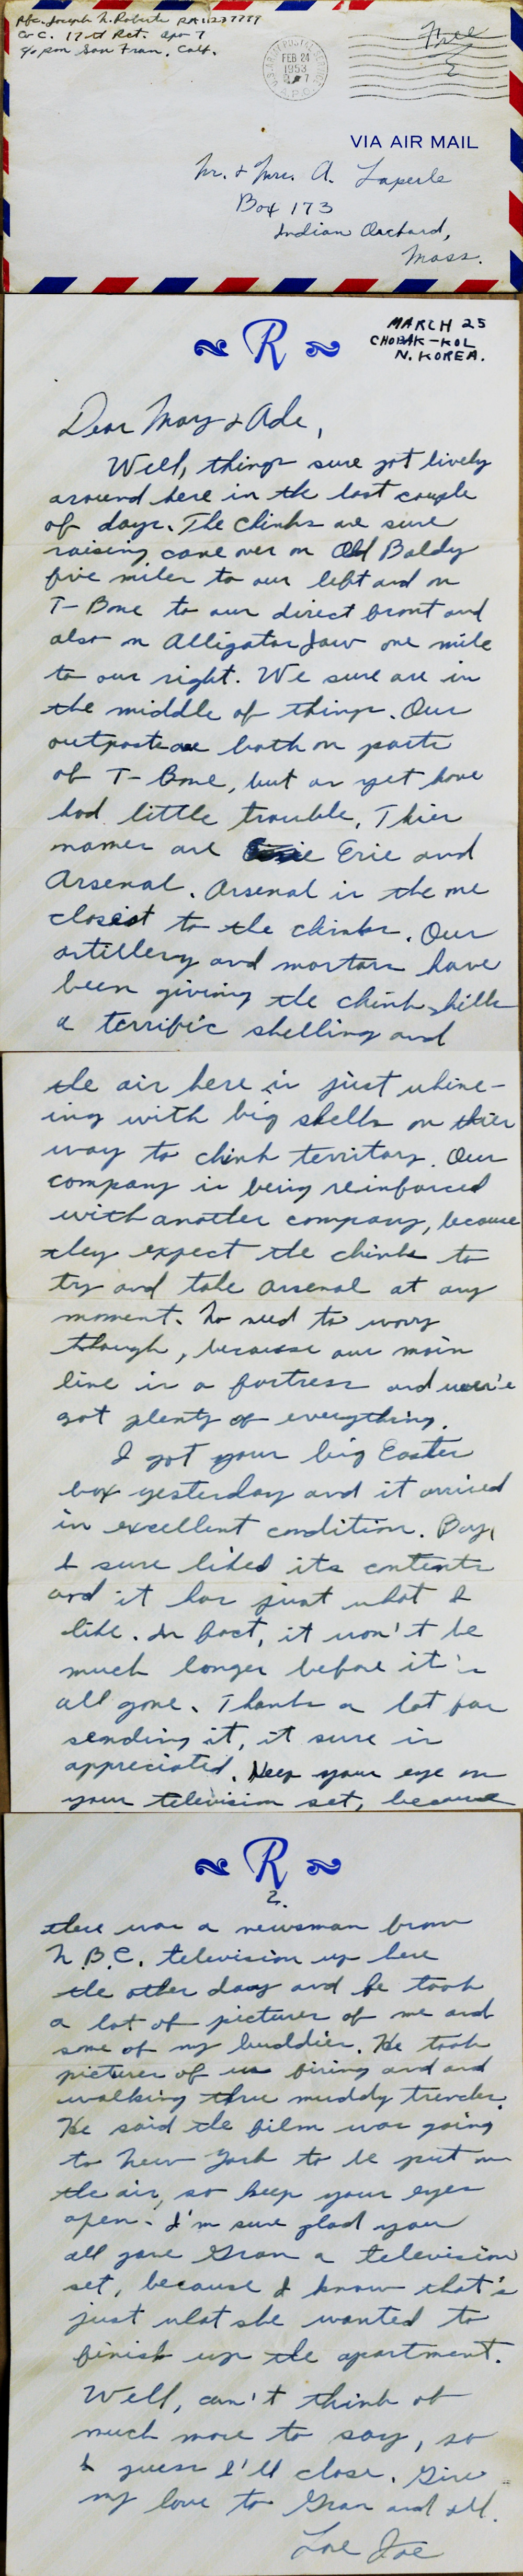 Pfc. Joseph N. Roberts RA11237777
Co C. 17th Rgt. Apo 7
c/o pm San Fran. Calf.
U.S. ARMY POSTAL SERVICE
FEB 24
1953
A.P.O.
Free
VIA AIR MAIL
Mr. & Mrs. A. Laperle
Box 173
Indian Orchard,
Mass.
R
MARCH 25
CHOBAK-KOL
N. KOREA.
Dear May & Ade,
Well, things sure got lively
around here in the last couple
of days. The chinks are sure
raising cane over on Old Baldy
five miles to our left and on
T-Bone to our direct front and
also on Alligator Jaw one mile
to our right. We sure are in
the middle of things. Our
outposts are both on parts
of T-Bone, but as yet have
had little trouble. Thier
names are Erie and
Arsenal. Arsenal is the one
closest to the chinks. Our
artillery and mortars have
been giving the chink hills
a terrific shelling and
the air here is just whine-
ing with big shells on thier
way to chink territory. Our
company is being reinforced
with another company, because
they expect the chinks to
try and take Arsenal at any
moment. No need to worry
though, because our main
line is a fortress and we've
got plenty of everything.
I got your big Easter
box yesterday and it arrived
in excellent condition. Boy,
I sure liked its contents
and it has just what I
like. In fact, it won't be
much longer before it's
all gone. Thanks a lot for
sending it, it sure is
appreciated. Keep your eye on
your television set, because
R
2.
there was a newsman from
N.B.C. television up here
the other day and he took
a lot of pictures of me and
some of my buddies. He took
pictures of us firing and and
walking thru muddy trenches.
He said the film was going
to New York to be put on
the air, so keep your eyes
open. I'm sure glad you
all gave Gran a television
set, because I know that's
just what she wanted to
finish up the apartment.
Well, can't think of
much more to say, so
I guess I'll close. Give
my love to Gran and all.
Love Joe